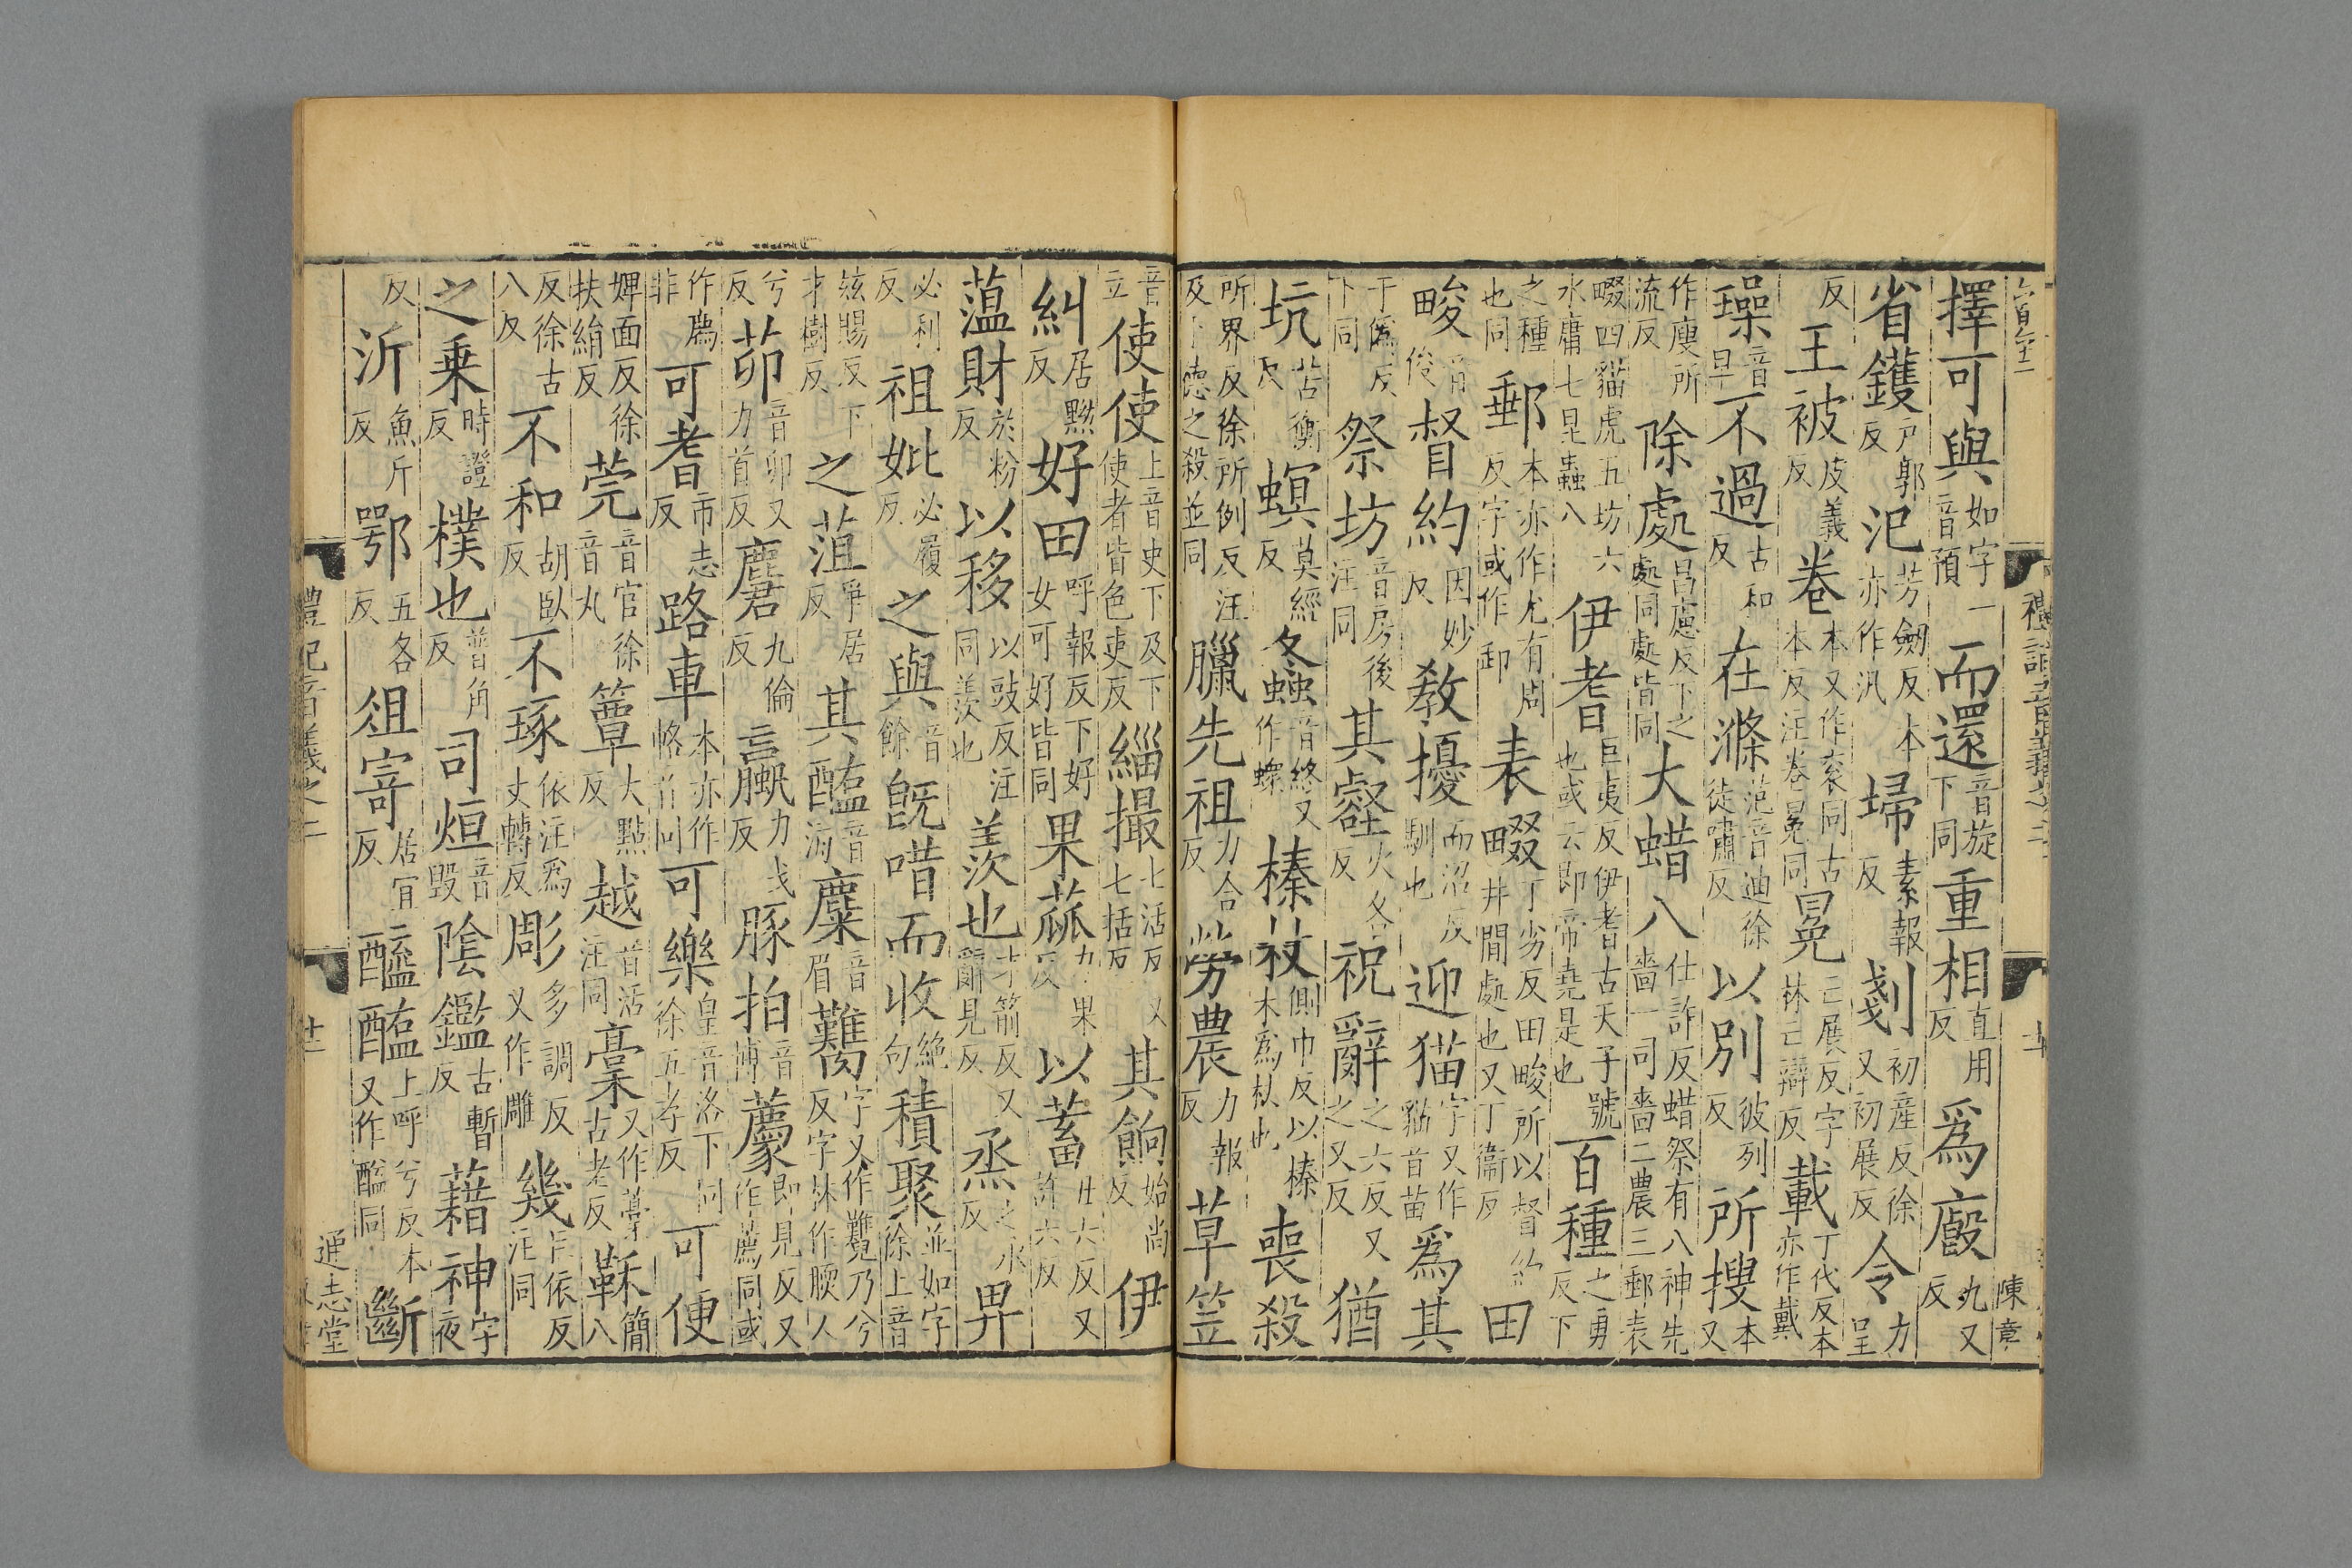 禮記音義之二
陳章
擇可與如字一音預而還音旋下同重相直用反爲廏九又反
省鑊戸郭反氾芳劒反本亦作汎埽素報反剗初產反徐又初展反令力呈
反王被皮義反卷本又作衮同古本反注卷冕同冕亡展反字林亡辯反載丁代反本亦作戴
璪音早不過古和反在滌范音迪徐徒嘯反以別彼列反所搜本又
作廋所流反除處昌慮反下之處同處皆同大蜡八仕詐反蜡祭有八神先嗇一司嗇二農三郵表
畷四貓虎五坊六水庸七昆蟲八伊耆巨夷反伊耆古天子號也或云即帝堯是也百種之勇反下
之種也同郵本亦作尤有周反字或作卸表畷丁劣反田畯所以督約井間處也又丁衞反田
畯音俊督約因妙反教擾而沼反馴也迎猫字又作貓音苗爲其
于僞反下同祭坊音房後注同其壑火各反祝辭之六反又之又反猶
坑苦衡反螟莫經反螽音終又作螺榛杖側巾反以榛木爲杖也喪殺
所界反徐所例反注及下德之殺並同臘先祖力合反勞農力報反草笠
音立使使上音史下及下使者皆色吏反緇撮七活反又七括反其餉始尚反伊
糾居黝反好田呼報反下好女可好皆同果蓏力果反以蓄丑六反又許六反
薀財於粉反以移以豉反注同羨也羨也才箭反又辭見反烝之氶反畀
必利反祖妣必履反之與音餘旣㗭而收絶句積聚並如字徐上音
兹賜反下才樹反之菹爭居反其醢音海麋音眉臡字又作乃兮反字林作腝人
兮反茆音卯又力首反麏九倫反蠃力戈反豚拍音博即見反又作薦同或
作廌非可耆市志反路車本亦作輅音同可樂皇音洛下同徐五孝反可便
婢面反徐扶絹反莞音官徐音丸簟大點反越音活注同稾又作藁古老反鞂簡八
反徐古八反不和胡臥反不琢依注爲丈轉反彫多調反又作雕幾巨依反注同
之乗時證反樸也普角反司烜音毀陰鑑古暫反藉神字夜
反沂魚斤反鄂五各反俎寄居宜反醯醢上呼兮反本又作醘同斷
禮記音義之二
通志堂